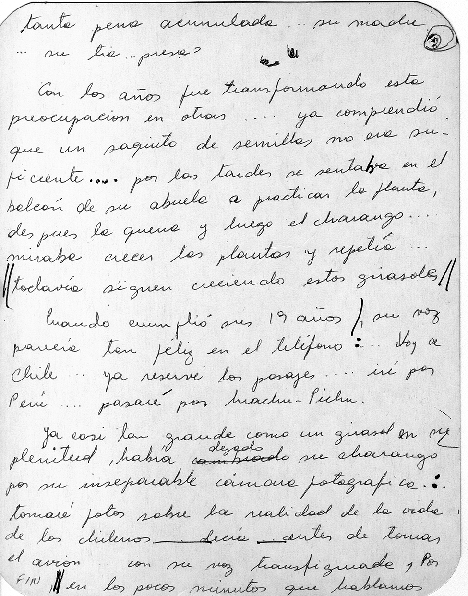 tanta pena acumulada... su madre
... su tía.. presa?
2
Con los años fue transformando esta
preocupacion en otras .... ya comprendió
que un saquito de semillas no era su-
ficiente.... por las tardes se sentaba en el
balcón de su abuela a practicar la flauta,
despues la quena y luego el charango...
miraba crecer las plantas y repetía ...
//todavía siguen creciendo estos girasoles//
Cuando cumplió sus 19 años /, su voz
parecía tan feliz en el teléfono :... Voy a
Chile ... ya reservé los pasajes .... iré por
Perú .... pasaré por Machu-Pichu.
Ya casi tan grande como un girasol en su
plenitud, había dejado su charango
por su inseparable cámara fotografica.:
tomaré fotos sobre la realidad de la vida
de los chilenos __ decía __ antes de tomar
el avión con su voz transfigurada, Por
FIN // en los pocos minutos que hablamos